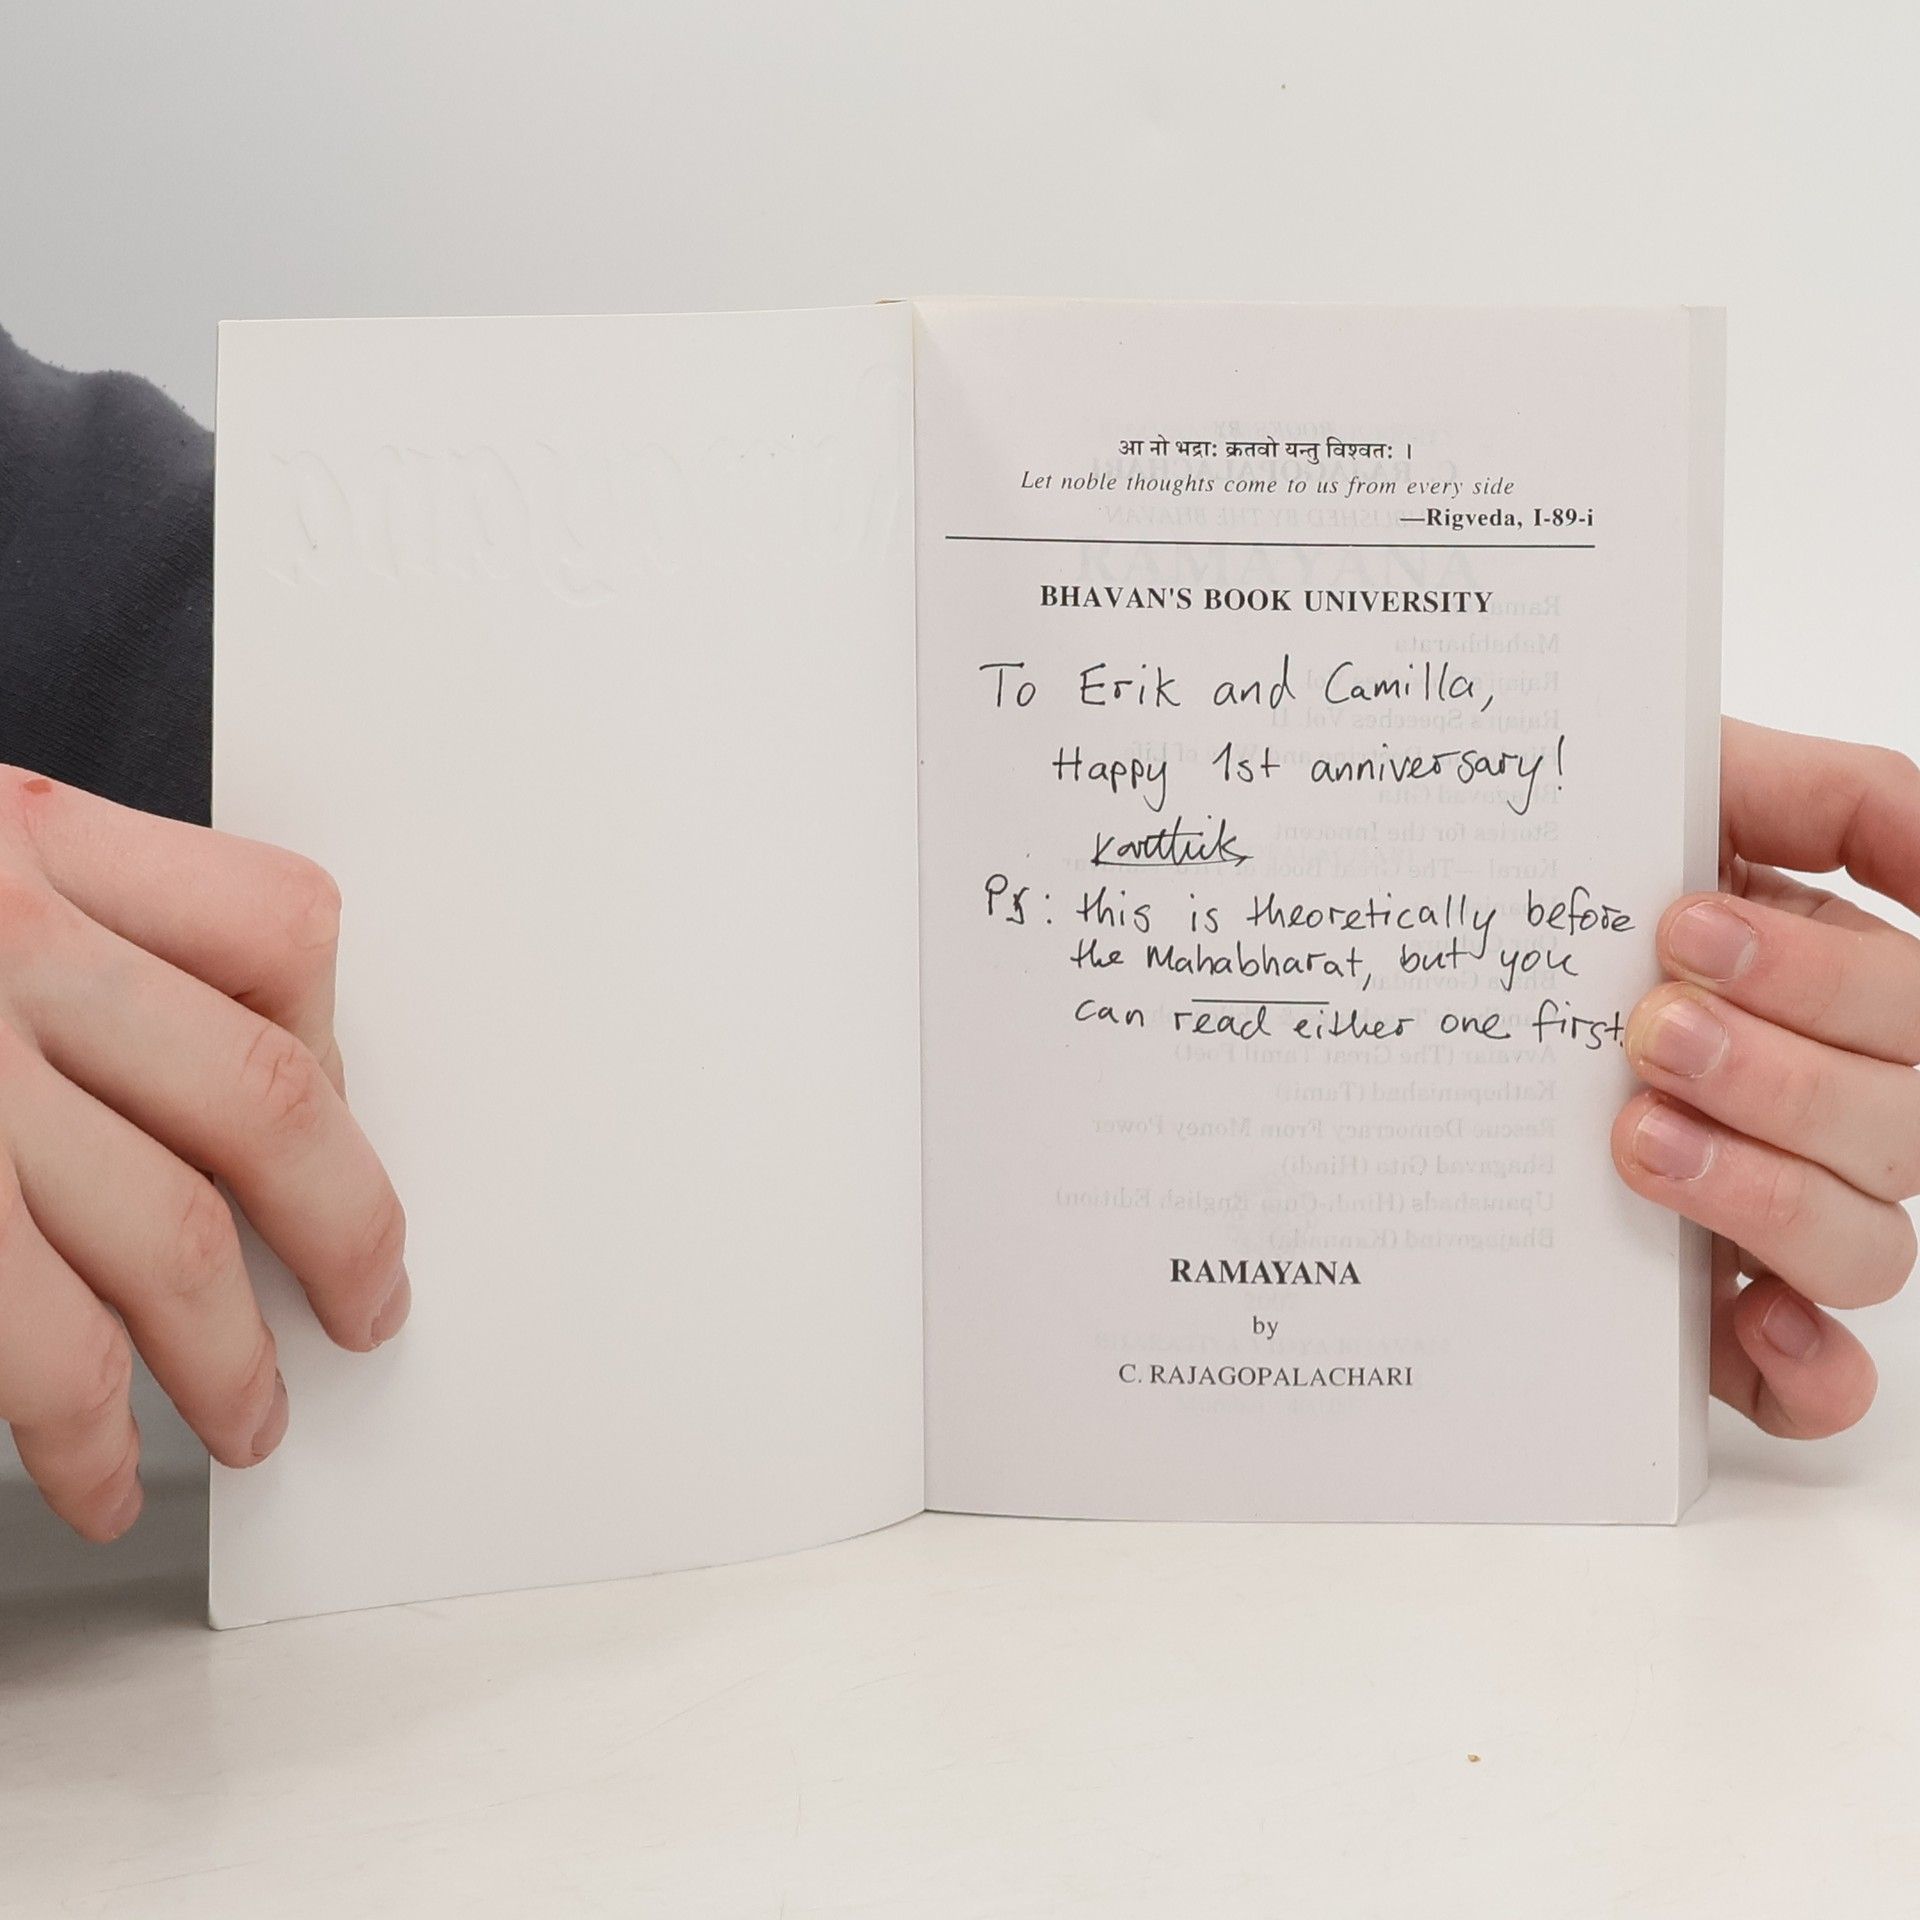 आ नो भद्राः क्रतवो यन्तु विश्वतः ।
Let noble thoughts come to us from every side
—Rigveda, I-89-i
BHAVAN'S BOOK UNIVERSITY
To Erik and Camilla,
Happy 1st anniversary!
Karthik
PS: this is theoretically before
the Mahabharat, but you
can read either one first.
RAMAYANA
by
C. RAJAGOPALACHARI